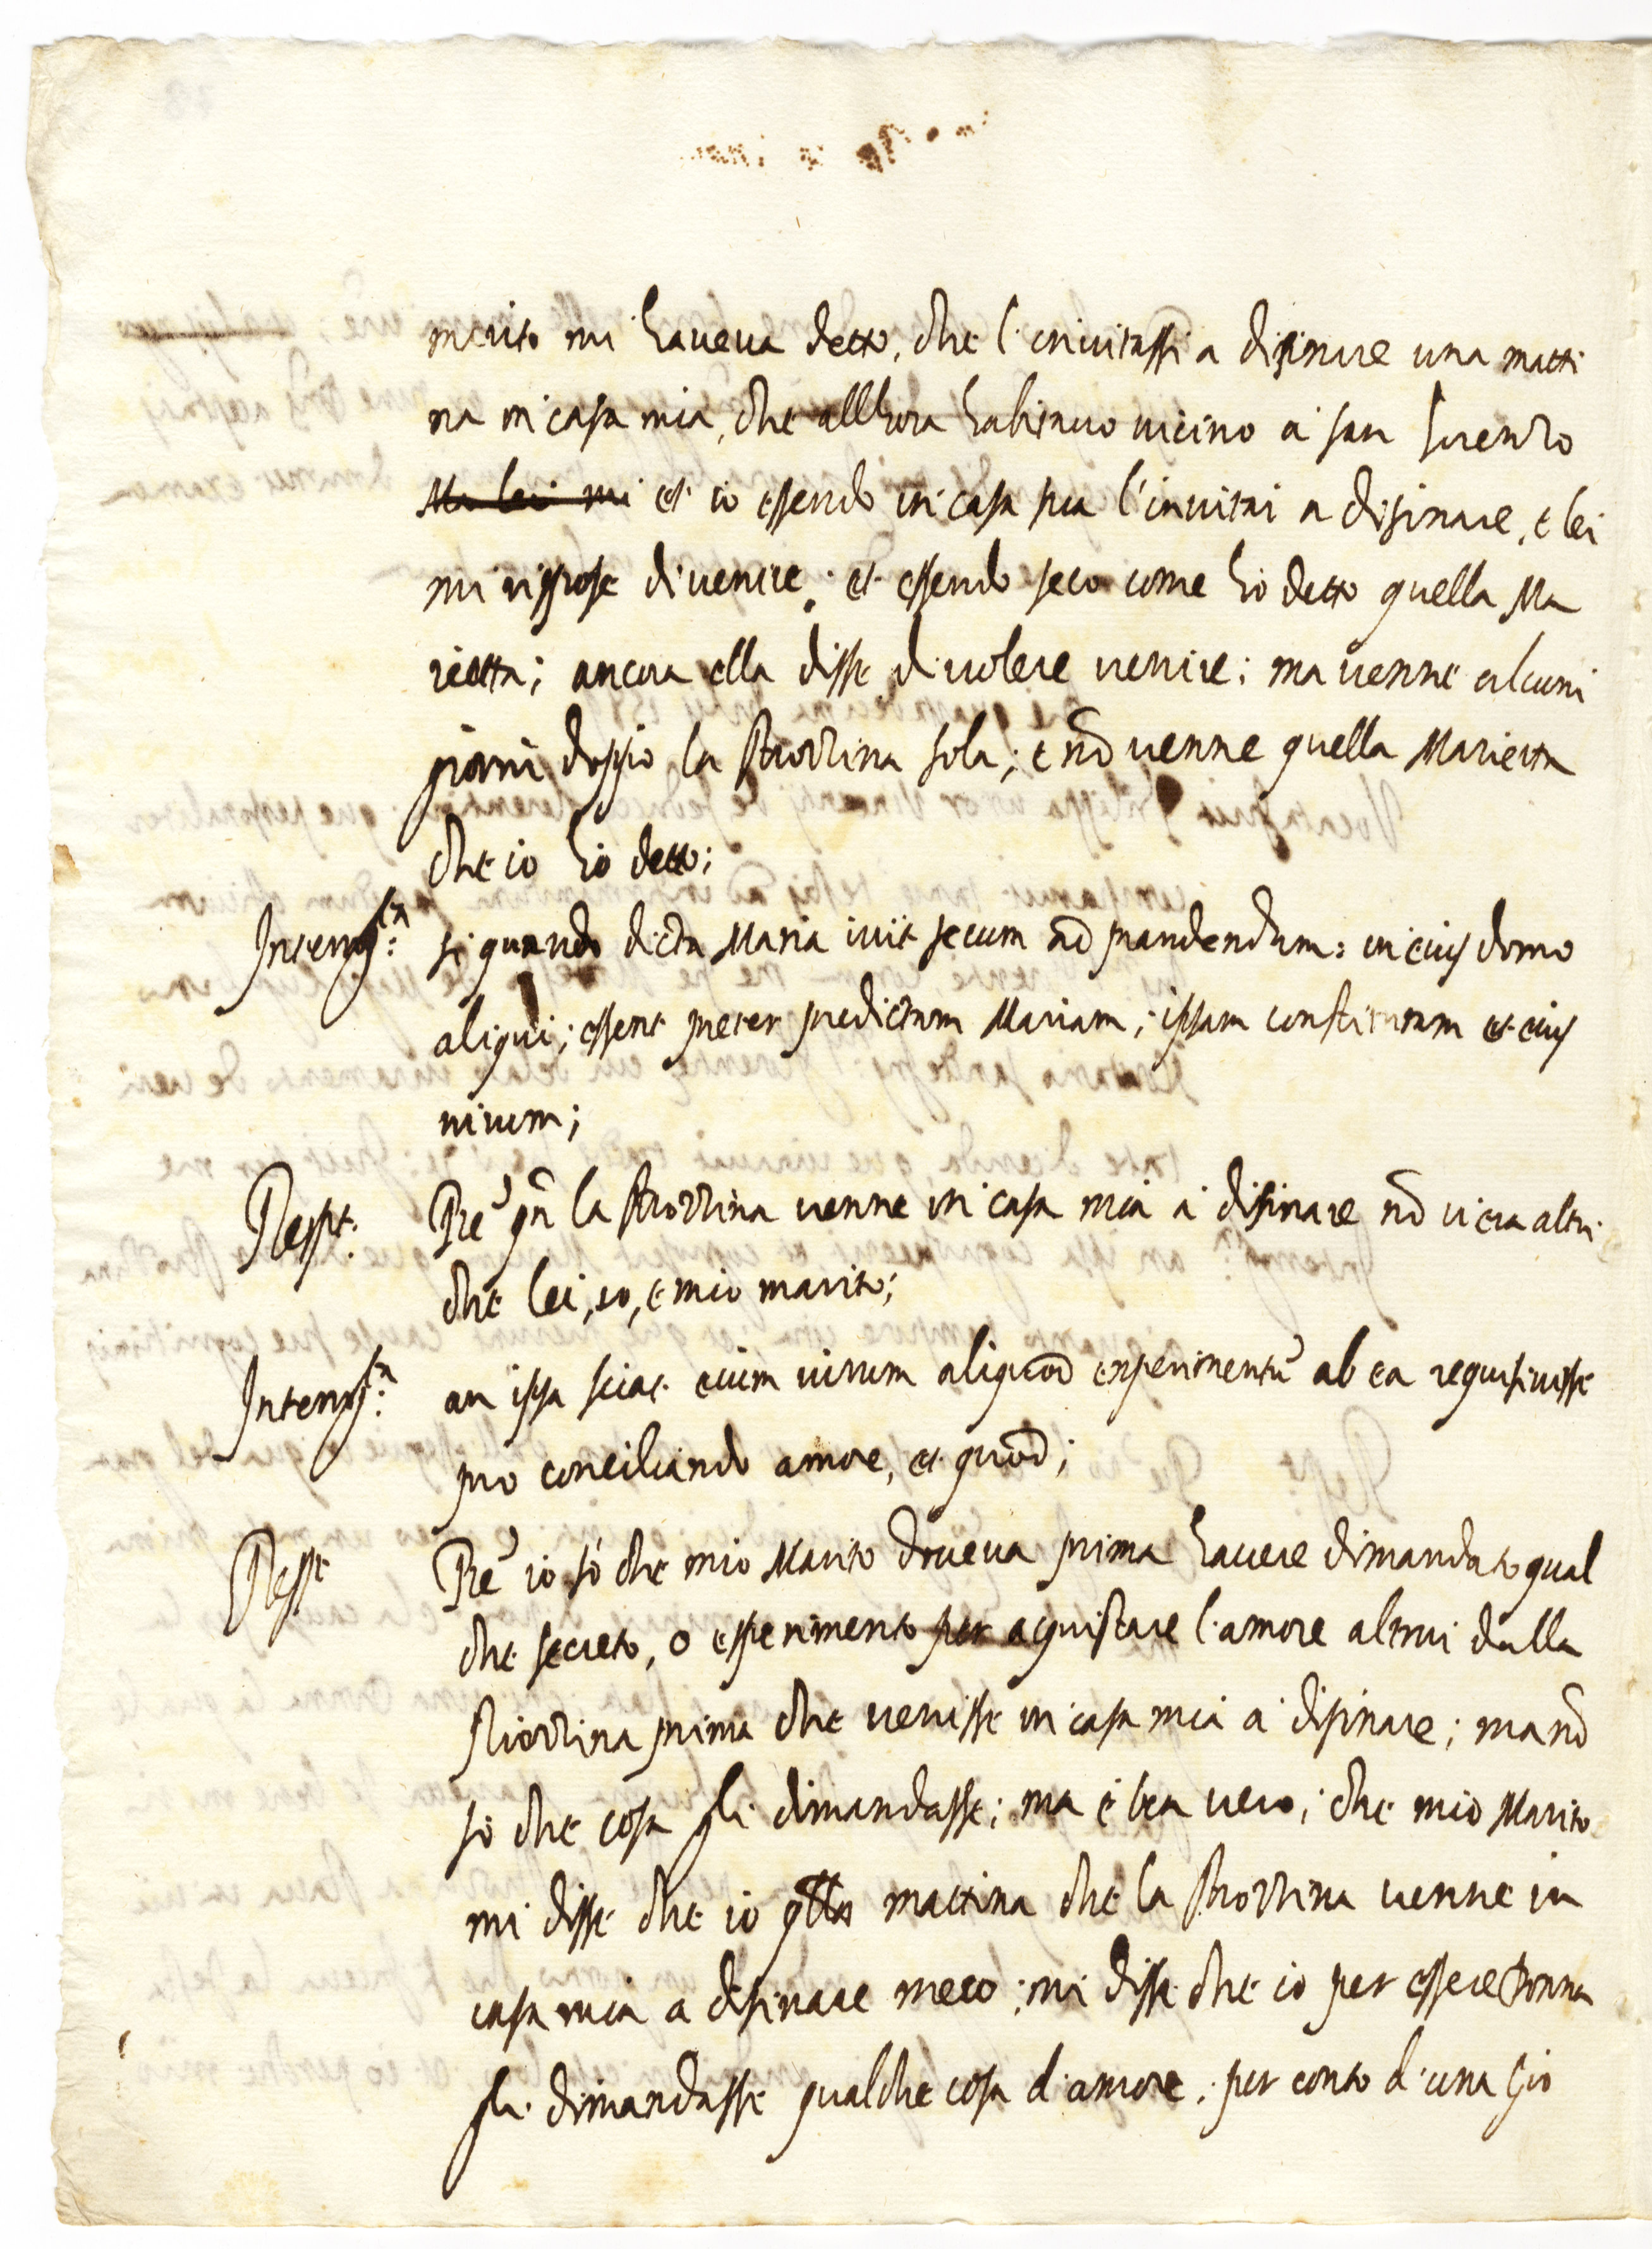 marito mi haveva detto, che l'invitassi a disinare una matti
na in casa mia, che allhora habitavo vicino a san Lorenzo
Ma lei mi et io essendo in casa sua l'invitai a disinare, e lei
mi rispose di venire. et essendo seco come hò detto quella Ma
rietta; ancora ella disse di volere venire; ma venne alcuni
giorni doppo la Strozzina sola; e nō venne quella Marietta
che io hò detto;
Interrog.ta si quando dicta Maria ivit secum ad prandendum: in eius domo
aliqui; essent preter predictam Mariam; ipsam constitutam et eius
virum;
Respt. Rē qn̄ la Strozzina venne in casa mia à disinare nō vi era altri
che lei, io, e mio marito;
Interrog.ta an ipsa sciat eium virum aliquod experimentū ab ea requisivisse
pro conciliando amore, et quod;
Respt Rē io sò che mio Marito doveva prima havere dimandato qual
che secreto, o esperimento per acquistare l'amore altrui dalla
Strozzina prima che venisse in casa mia à disinare; ma nō
sò che cosa gli dimandasse; ma è ben vero; che mio Marito
mi disse che io qlla mattina che la Strozzina venne in
casa mia a disinare meco; mi disse che io per essere donna
gli dimandasse qualche cosa d'amore. per conto d'una Gio